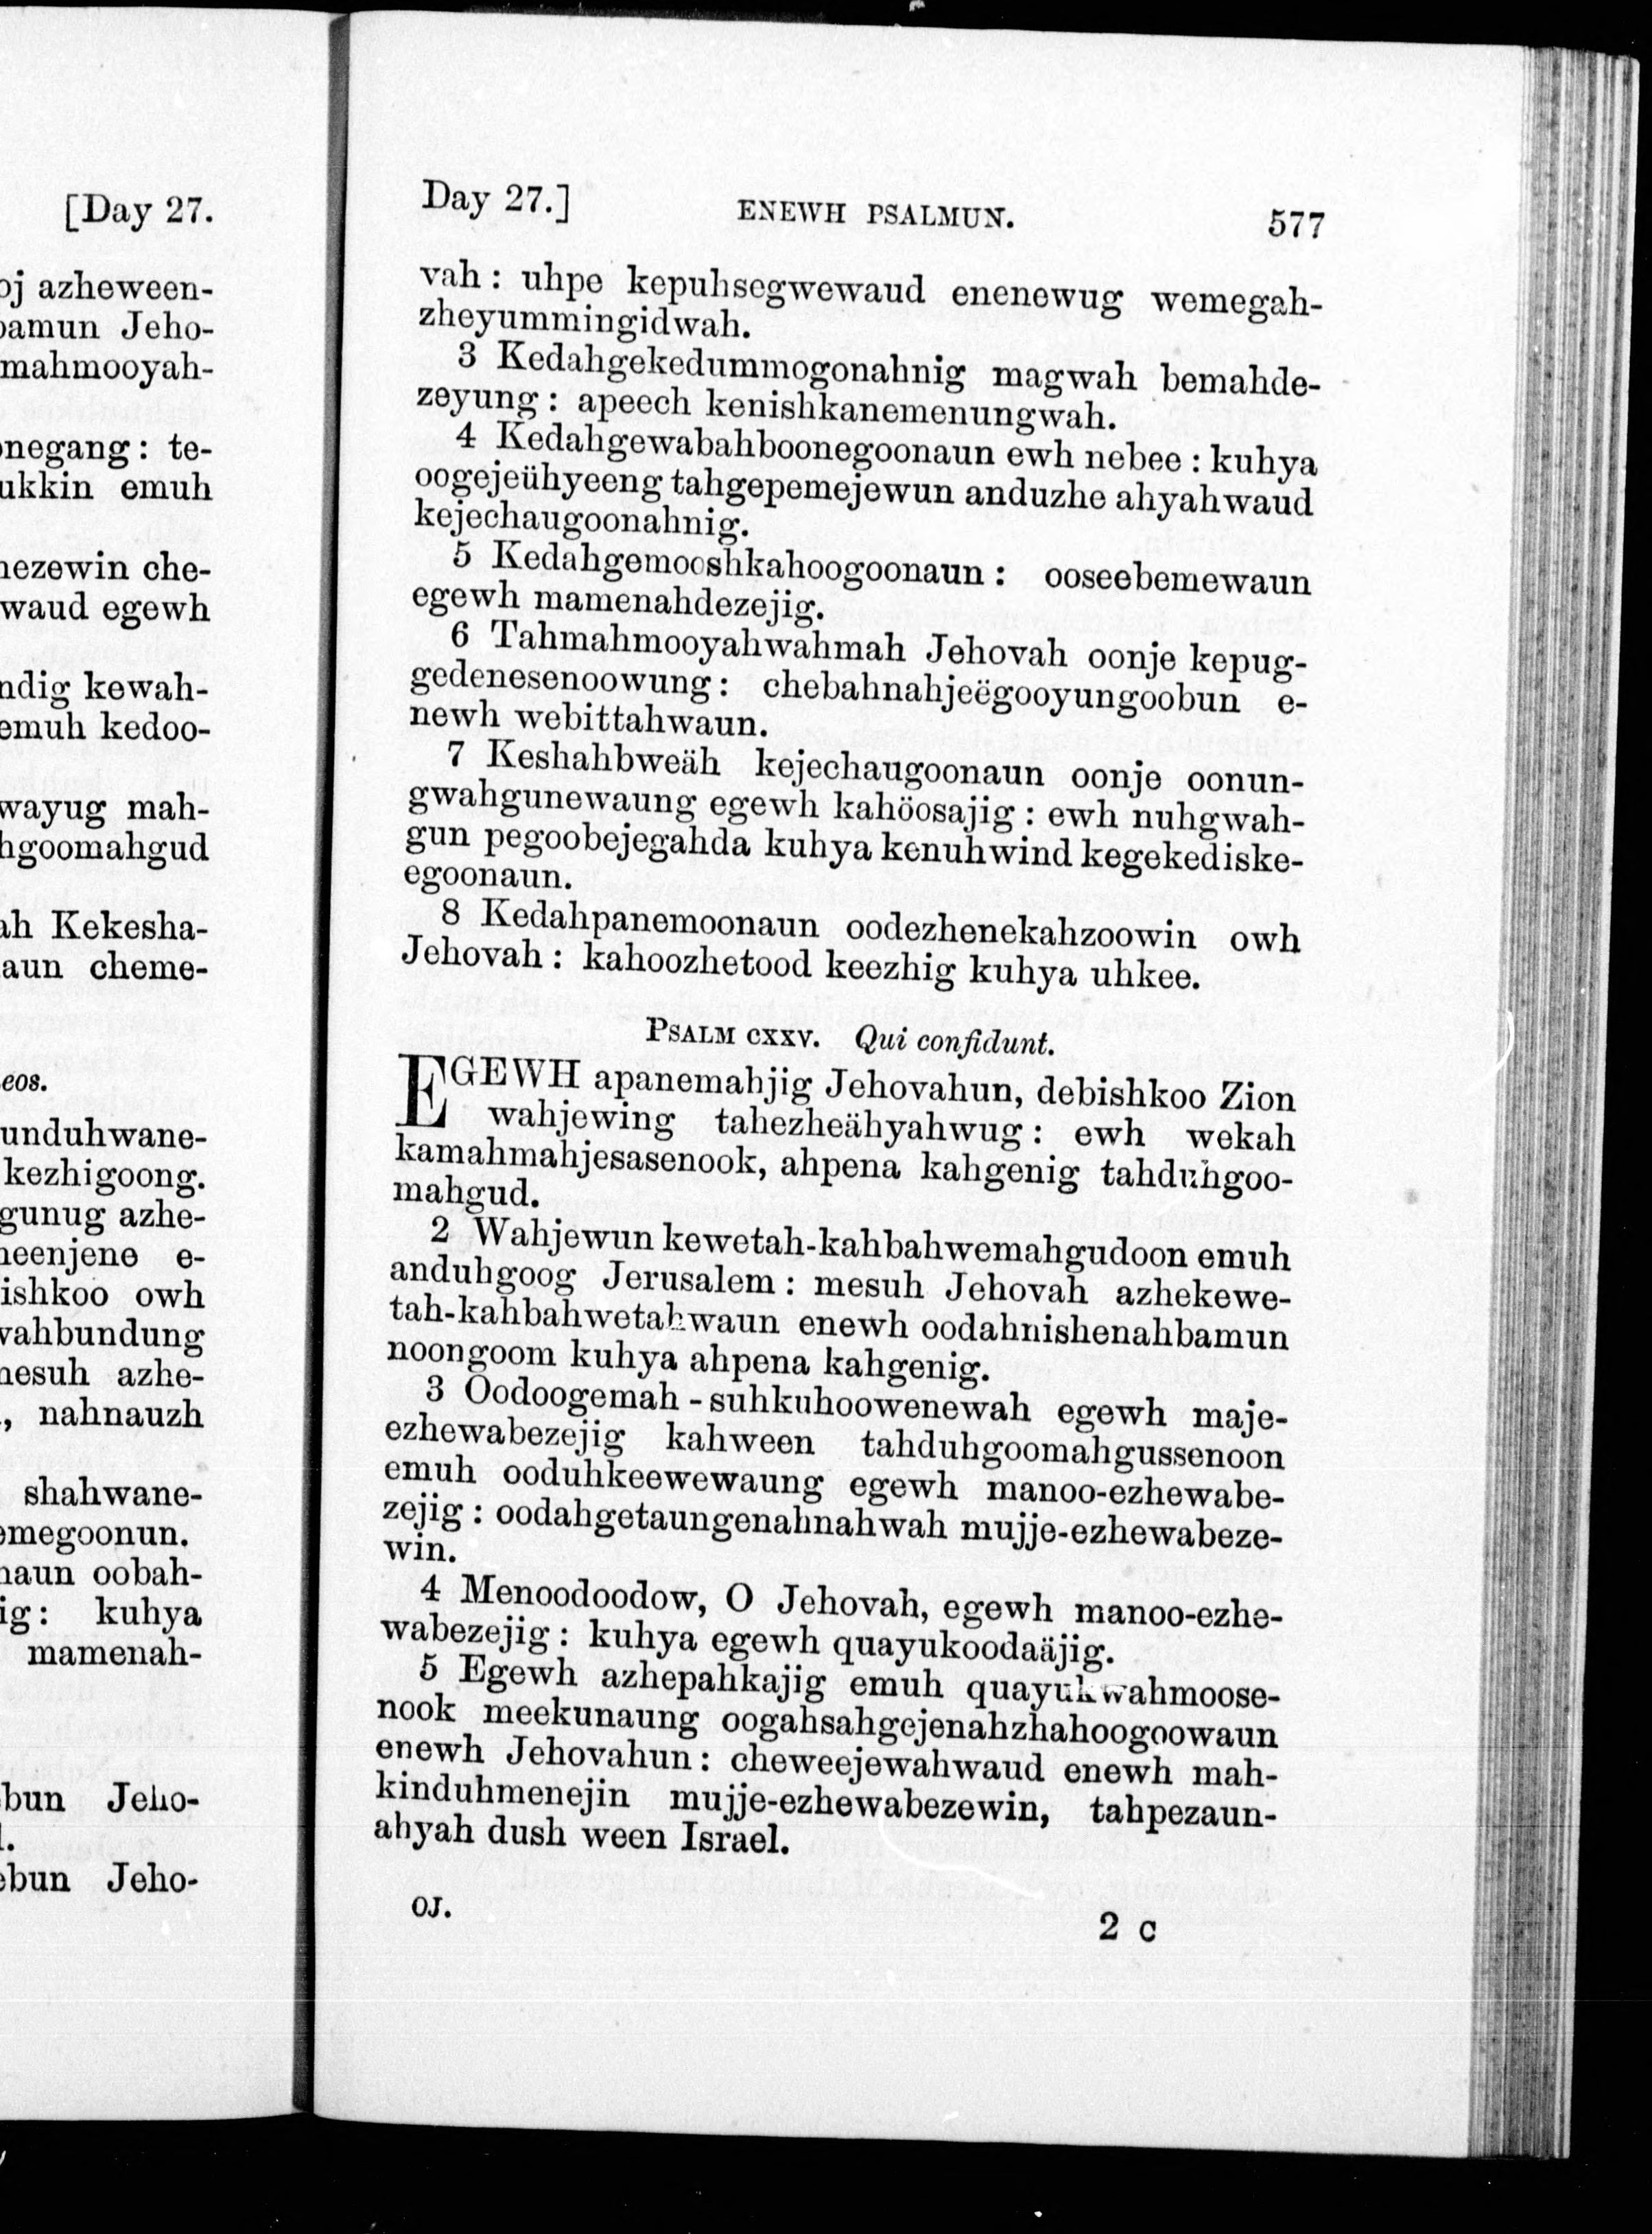 [Day 27.
azheween-
Jeho-
mahmooyah-
te-
emuh
che-
egewh
kewah-
kedoo-
mah-
Kekesha-
cheme-
kezhigoong.
azhe-
e-
owh
azhe-
nahnauzh
shahwane-
oobah-
kuhya
mamenah-
Jeho-
Jeho-
Day 27.] ENEWH PSALMUN. 577
vah : uhpe kepuhsegwewaud enenewug wemegah-
zheyummingidwah.
3 Kedahgekedummogonahnig magwah bemahde-
zeyung : apeech kenishkanemenungwah.
4 Kedahgewabahboonegoonaun ewh nebee : kuhya
oogejeühyeeng tahgepemejewun anduzhe ahyahwaud
kejechaugoonahnig.
5 Kedahgemooshkahoogoonaun : ooseebemewaun
egewh mamenahdezejig.
6 Tahmahmooyahwahmah Jehovah oonje kepug-
gedenesenoowung : chebahnahjeëgooyungoobun e-
newh webittahwaun.
7 Keshahbweäh kejechaugoonaun oonje oonun-
gwahgunewaung egewh kahöosajig : ewh nuhgwah-
gun pegoobejegahda kuhya kenuhwind kegekediske-
egoonaun.
8 Kedahpanemoonaun oodezhenekahzoowin owh
Jehovah : kahoozhetood keezhig kuhya uhkee.
PSALM CXXV. Qui confidunt.
EGEWH apanemahjig Jehovahun, debishkoo Zion
wahjewing tahezheähyahwug : ewh wekah
kamahmahjesasenook, ahpena kahgenig tahduhgoo-
mahgud.
2 Wahjewun kewetah-kahbahwemahgudoon emuh
anduhgoog Jerusalem : mesuh Jehovah azhekewe-
tah-kahbahwetahwaun enewh oodahnishenahbamun
noongoom kuhya ahpena kahgenig.
3 Oodoogemah-suhkuhoowenewah egewh maje-
ezhewabezejig kahween tahduhgoomahgussenoon
emuh ooduhkeewewaung egewh manoo-ezhewabe-
zejig : oodahgetaungenahnahwah mujje-ezhewabeze-
win.
4 Menoodoodow, O Jehovah, egewh manoo-ezhe-
wabezejig : kuhya egewh quayukoodaäjig.
5 Egewh azhepahkajig emuh quayukwahmoose-
nook meekunaung oogahsahgejenahzhahoogoowaun
enewh Jehovahun : cheweejewahwaud enewh mah-
kinduhmenejin mujje-ezhewabezewin, tahpezaun-
ahyah dush ween Israel.
OJ. 2 C